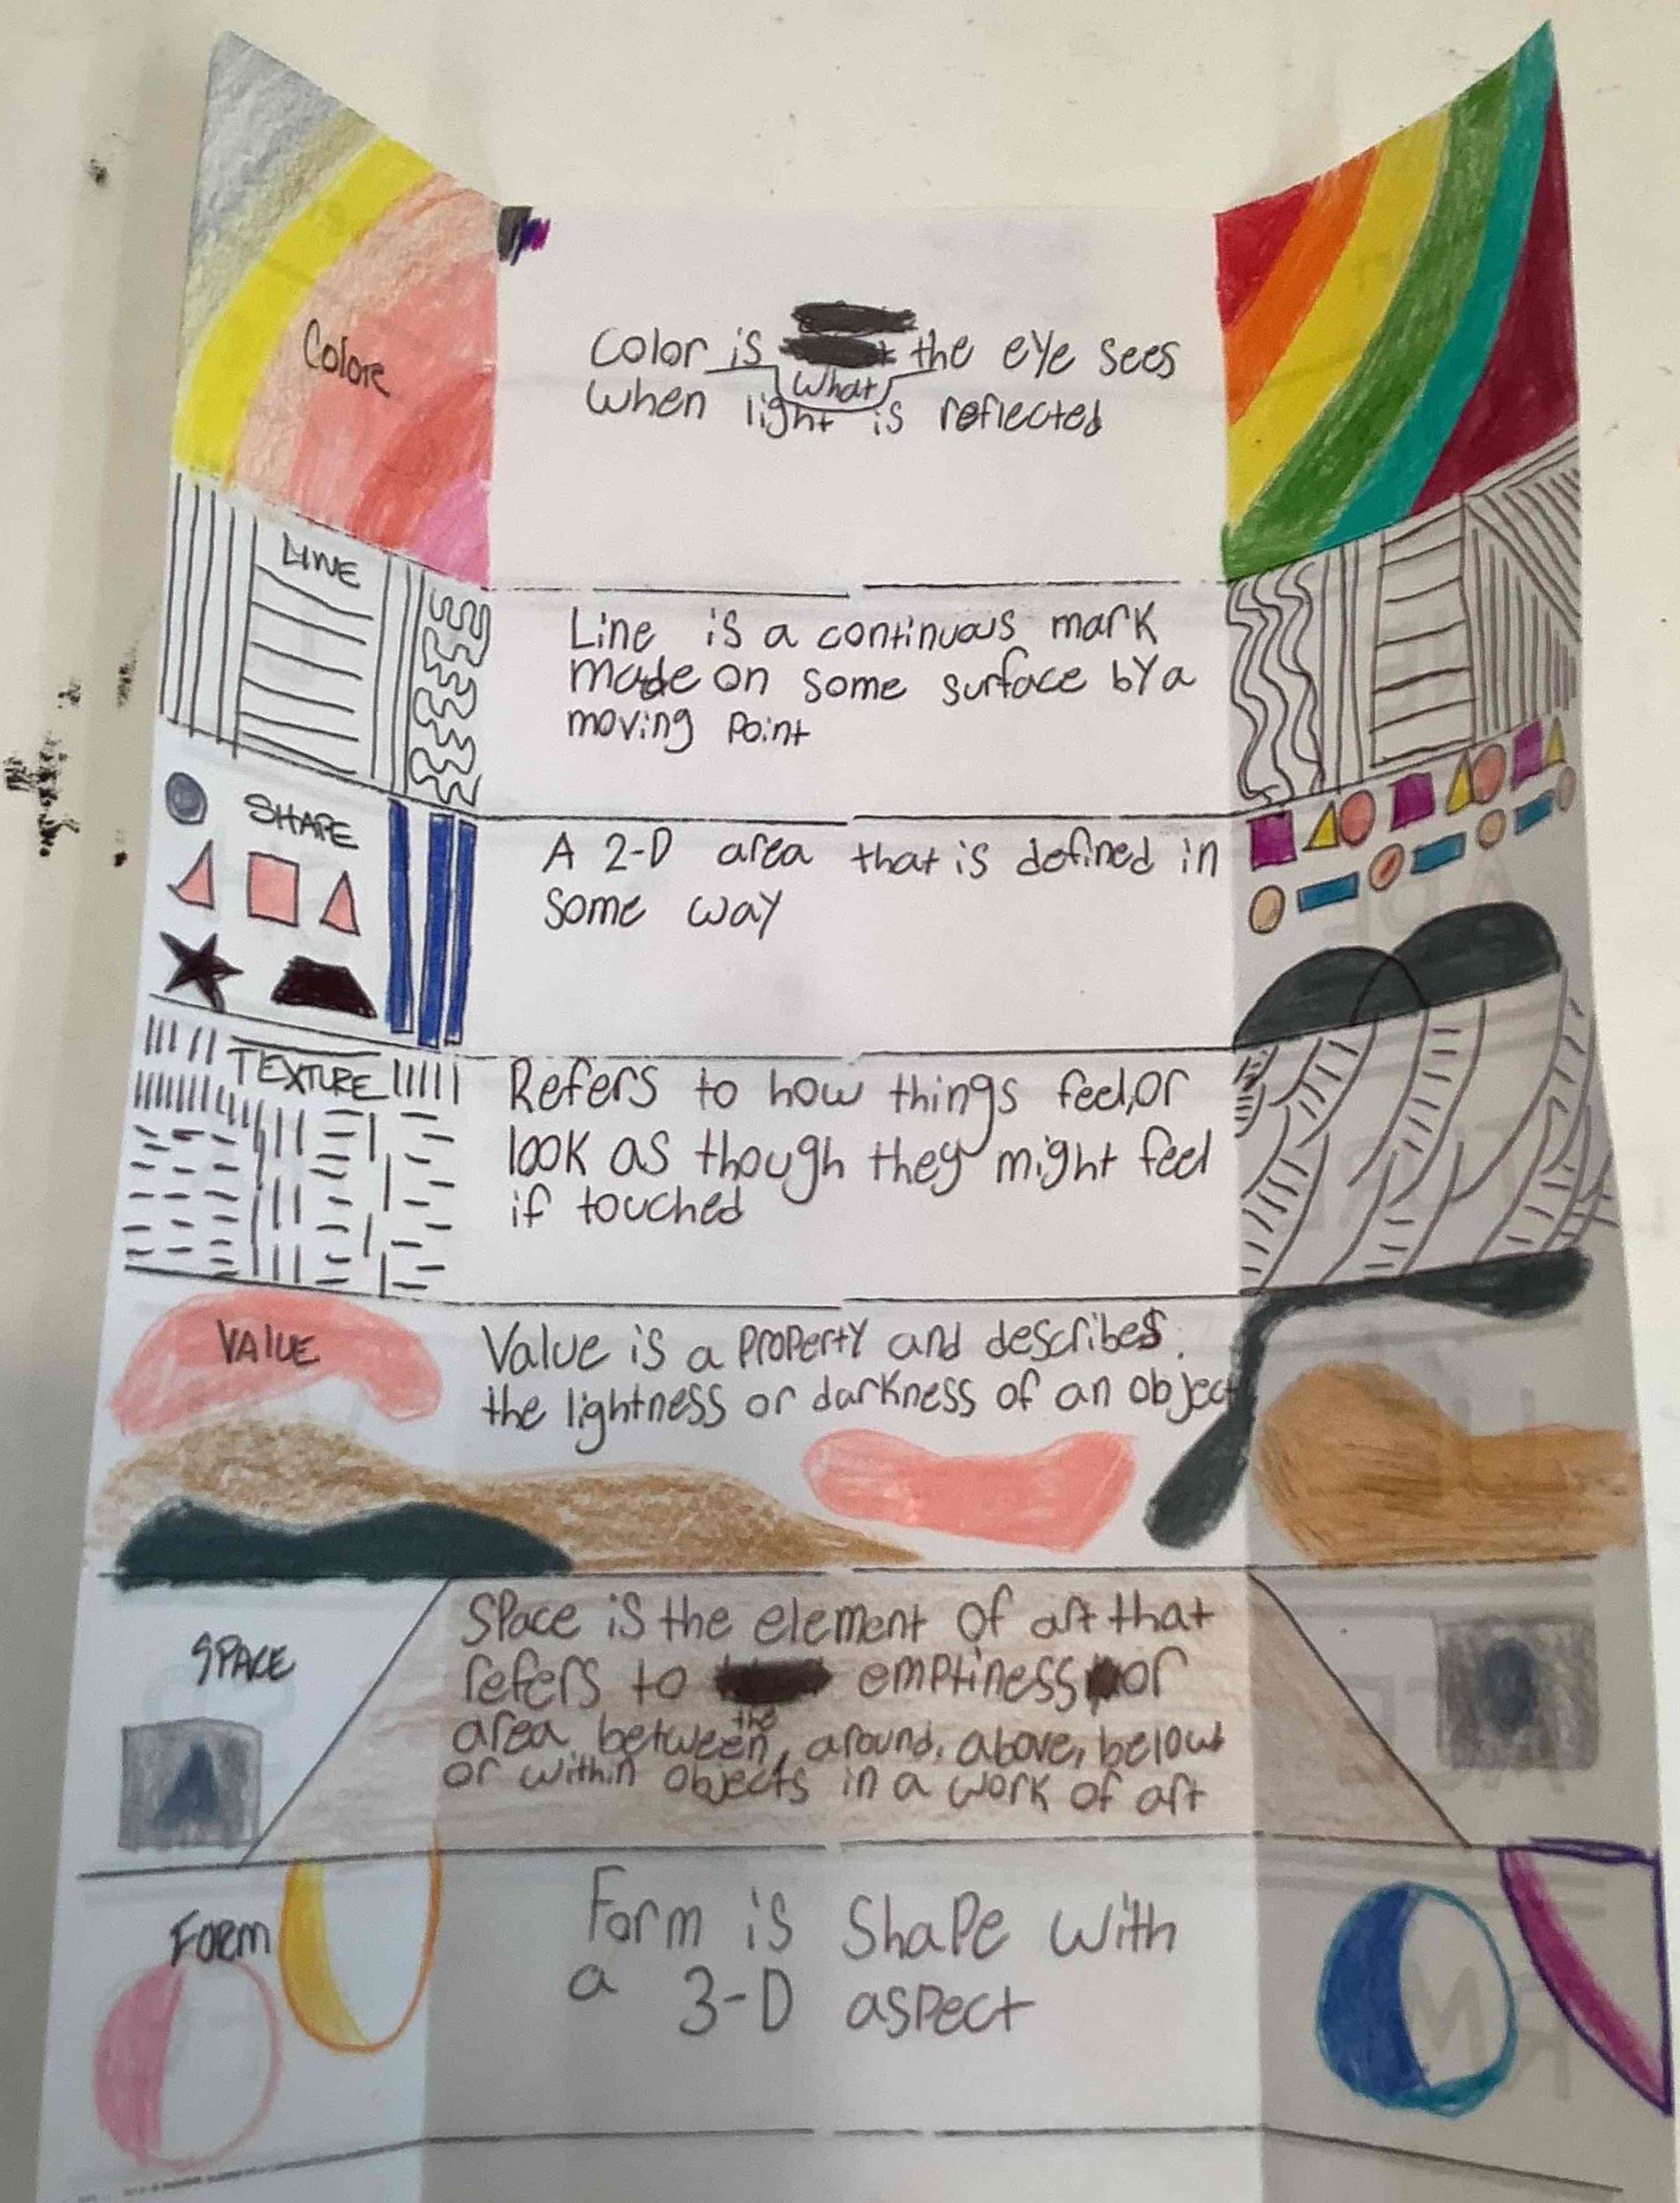 Color
Color is the eye sees
what
when light is reflected
LINE
Line is a continuous mark
made on some surface by a
moving point
SHAPE
A 2-D area that is defined in
some way
TEXTURE
Refers to how things feel, or
look as though they might feel
if touched
VALUE
Value is a property and describes
the lightness or darkness of an object
SPACE
Space is the element of art that
refers to emptiness or
the
area between, around, above, below
or within objects in a work of art
FORM
Form is Shape with
a 3-D aspect